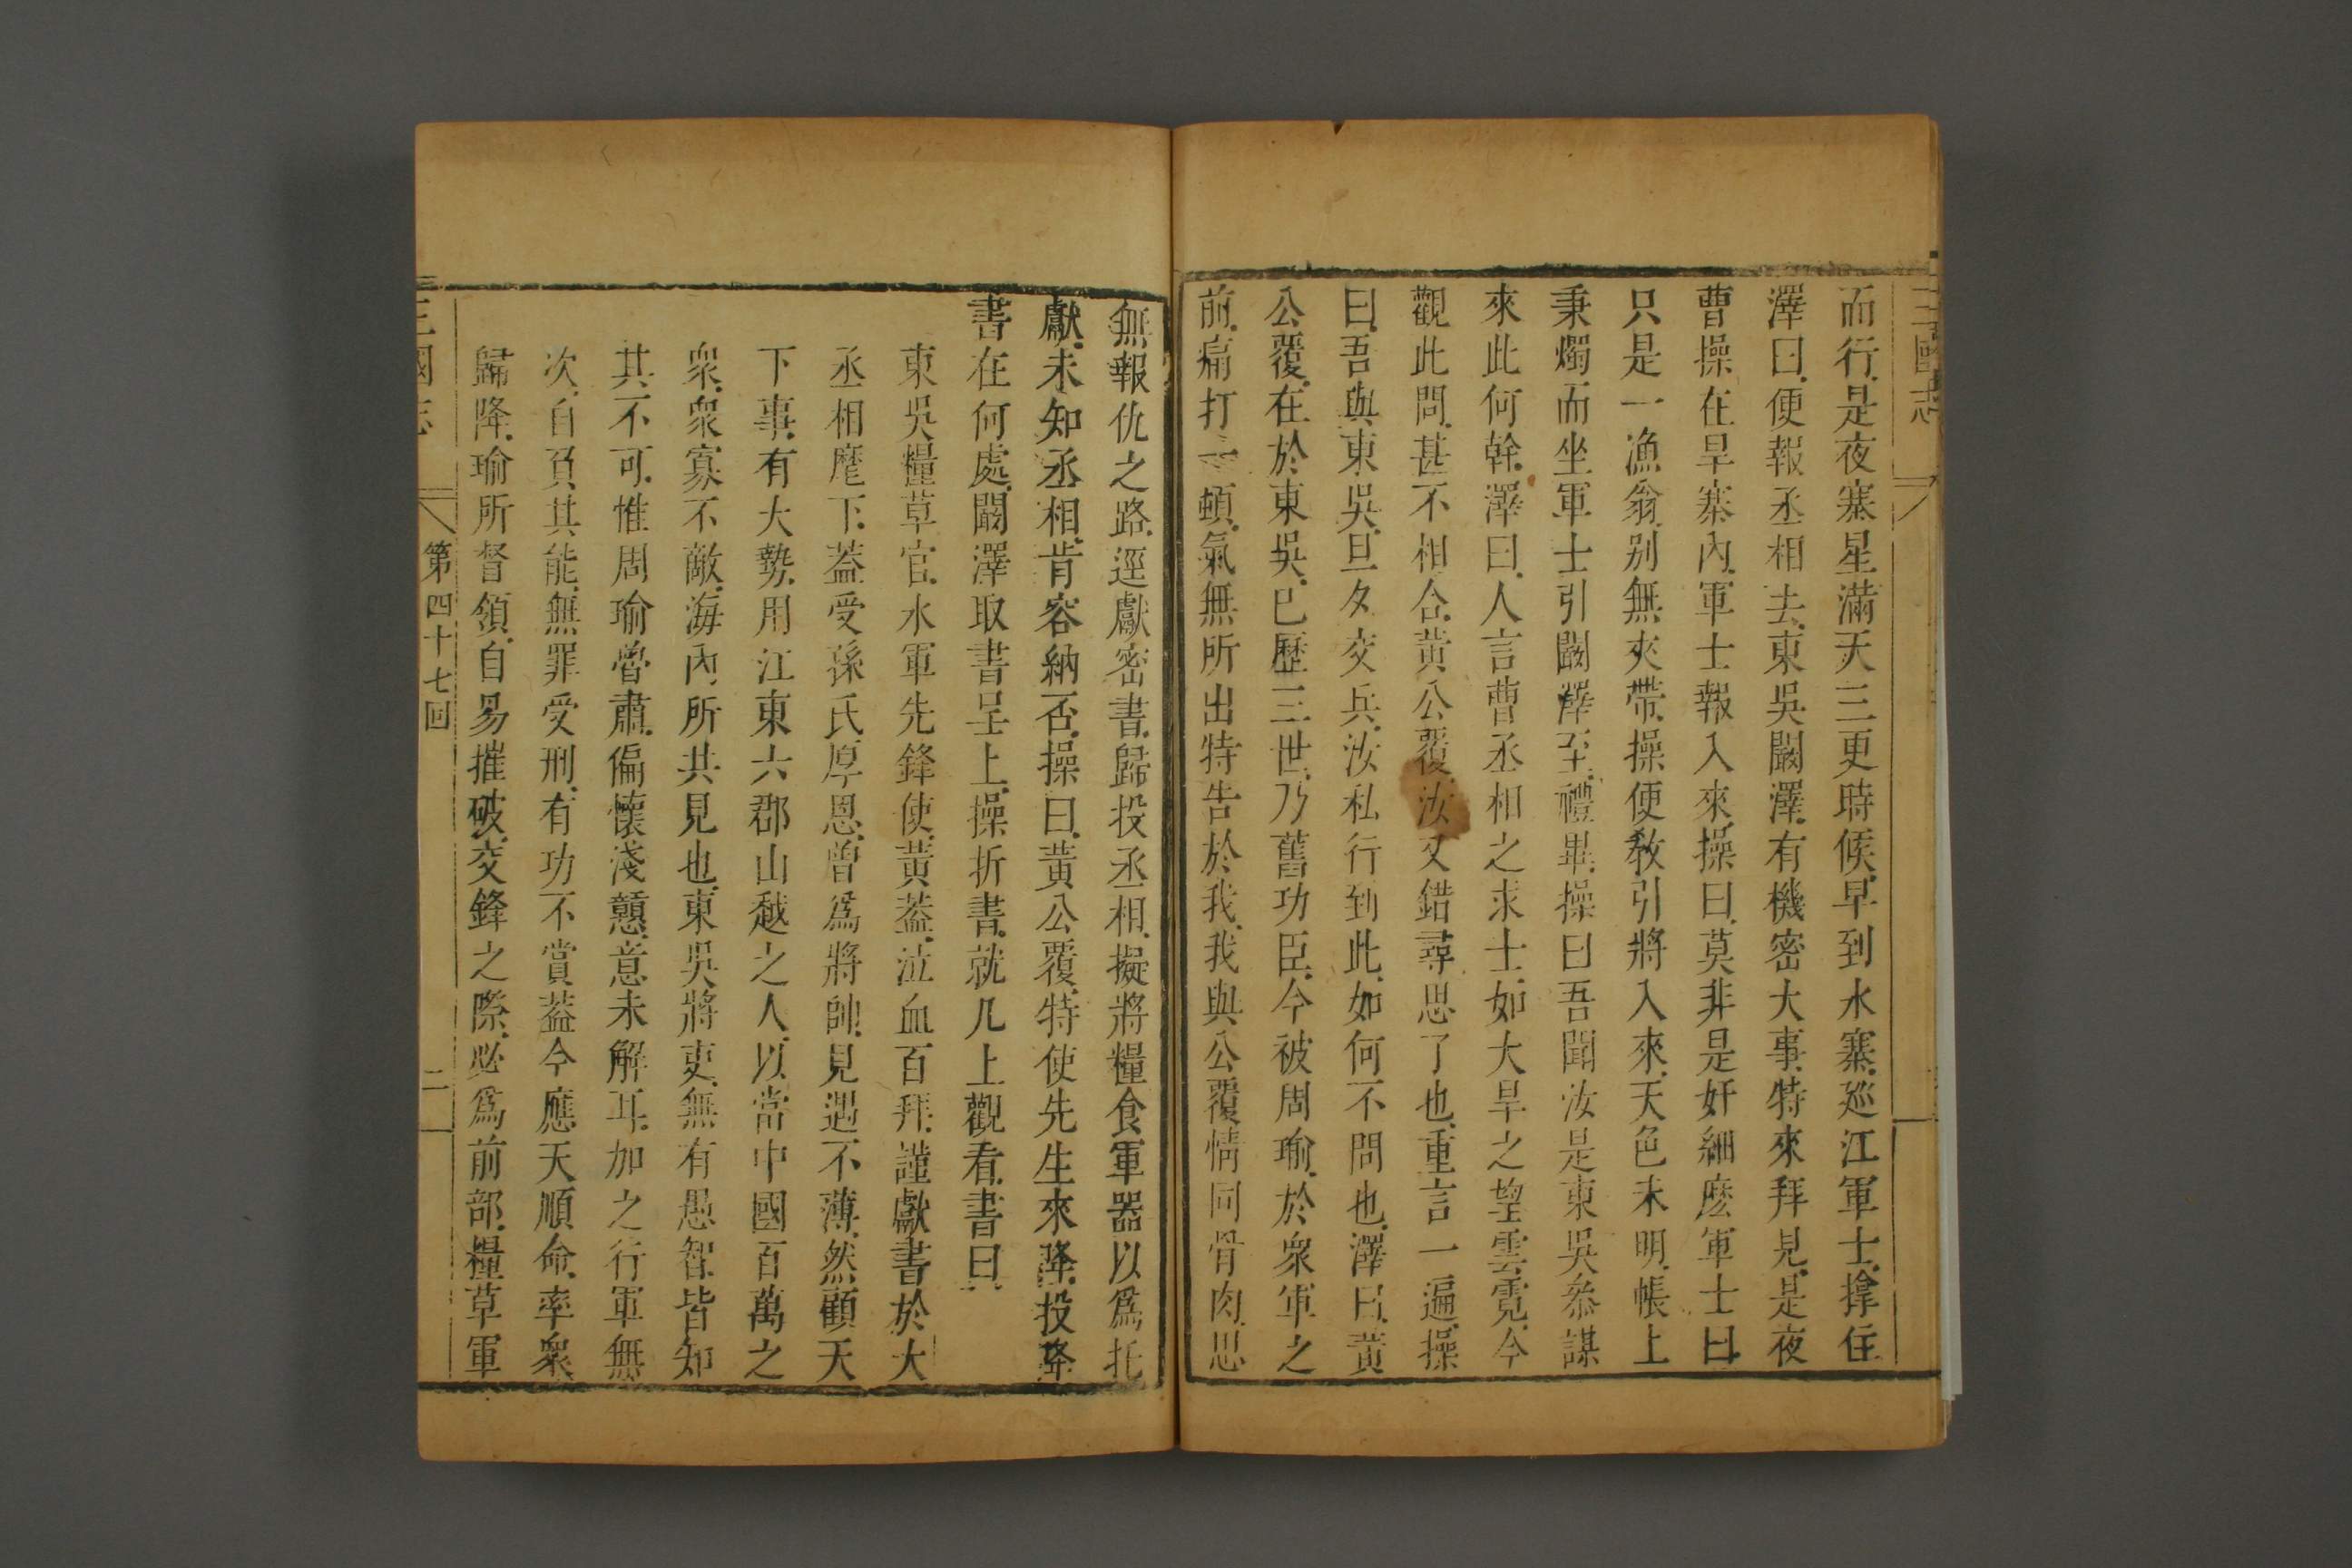 三國志
而行是夜寒星滿天三更時候早到水寨廵江軍士撑住
澤曰便報丞相去東吳闞澤有機密大事特來拜見是夜
曹操在旱寨內軍士報入來操曰莫非是奸細麽軍士曰
只是一漁翁别無夾帶操便教引將入來天色未明帳上
秉燭而坐軍士引闞澤至禮畢操曰吾聞汝是東吳叅謀
來此何幹澤曰人言曹丞相之求士如大旱之望雲霓今
觀此問甚不相合黃公覆汝又錯尋思了也重言一遍操
曰吾與東吳旦夕交兵汝私行到此如何不問也澤曰黃
公覆在於東吳已歷三世乃舊功臣今被周瑜於衆軍之
前痛打一頓氣無所出特告於我我與公覆情同骨肉思
無報仇之路逕獻密書歸投丞相擬將糧食軍器以爲托
獻未知丞相肯容納否操曰黃公覆特使先生來降投降
書在何處闞澤取書呈上操折書就几上觀看書曰
東吳糧草官水軍先鋒使黃葢泣血百拜謹獻書於大
丞相麾下葢受孫氏厚恩曾爲將帥見遇不薄然顧天
下事有大勢用江東六郡山越之人以當中國百萬之
衆衆寡不敵海內所共見也東吳將吏無有愚智皆知
其不可惟周瑜魯肅偏懷淺戇意未解耳加之行軍無
次自負其能無罪受刑有功不賞葢今應天順命率衆
歸降瑜所督領自易摧破交鋒之際必爲前部糧草軍
三國志 第四十七回 二